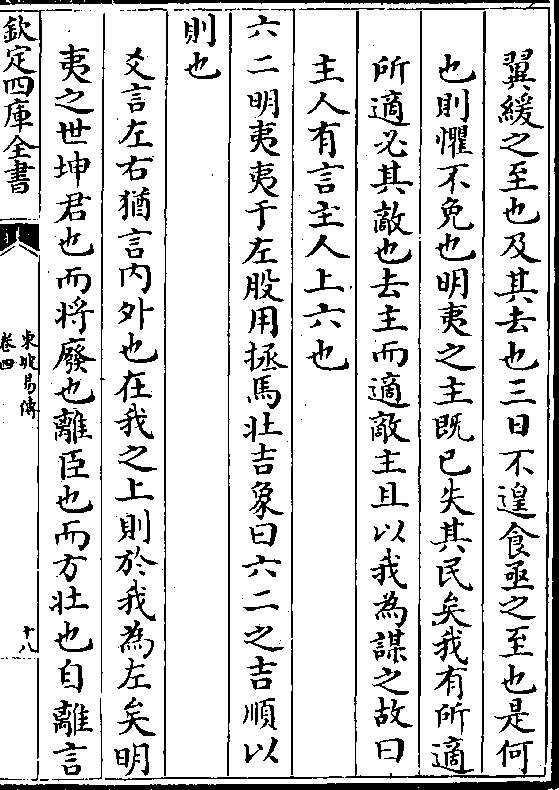 翼緩之至也及其去也三日不遑食亟之至也是何
也則懼不免也明夷之主既已失其民矣我有所適
所適必其敵也去主而適敵主且以我為謀之故曰
主人有言主人上六也
六二明夷夷于左股用拯馬壯吉象曰六二之吉順以
則也
爻言左右猶言內外也在我之上則於我為左矣明
夷之世坤君也而將廢也離臣也而方壯也自離言
欽定四庫全書
東坡易傳
卷四
十八